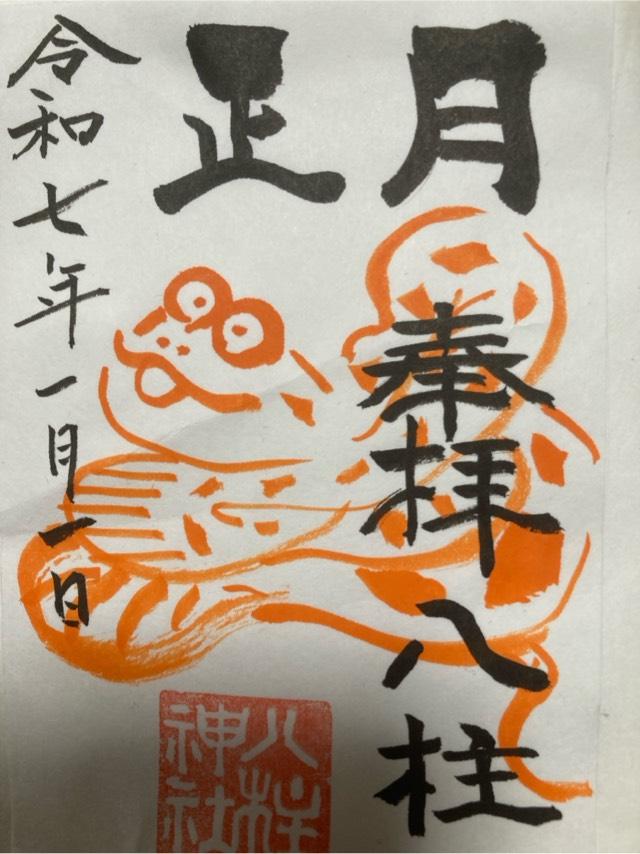 正月
奉拝
八柱
令和七年一月一日
八柱
神社